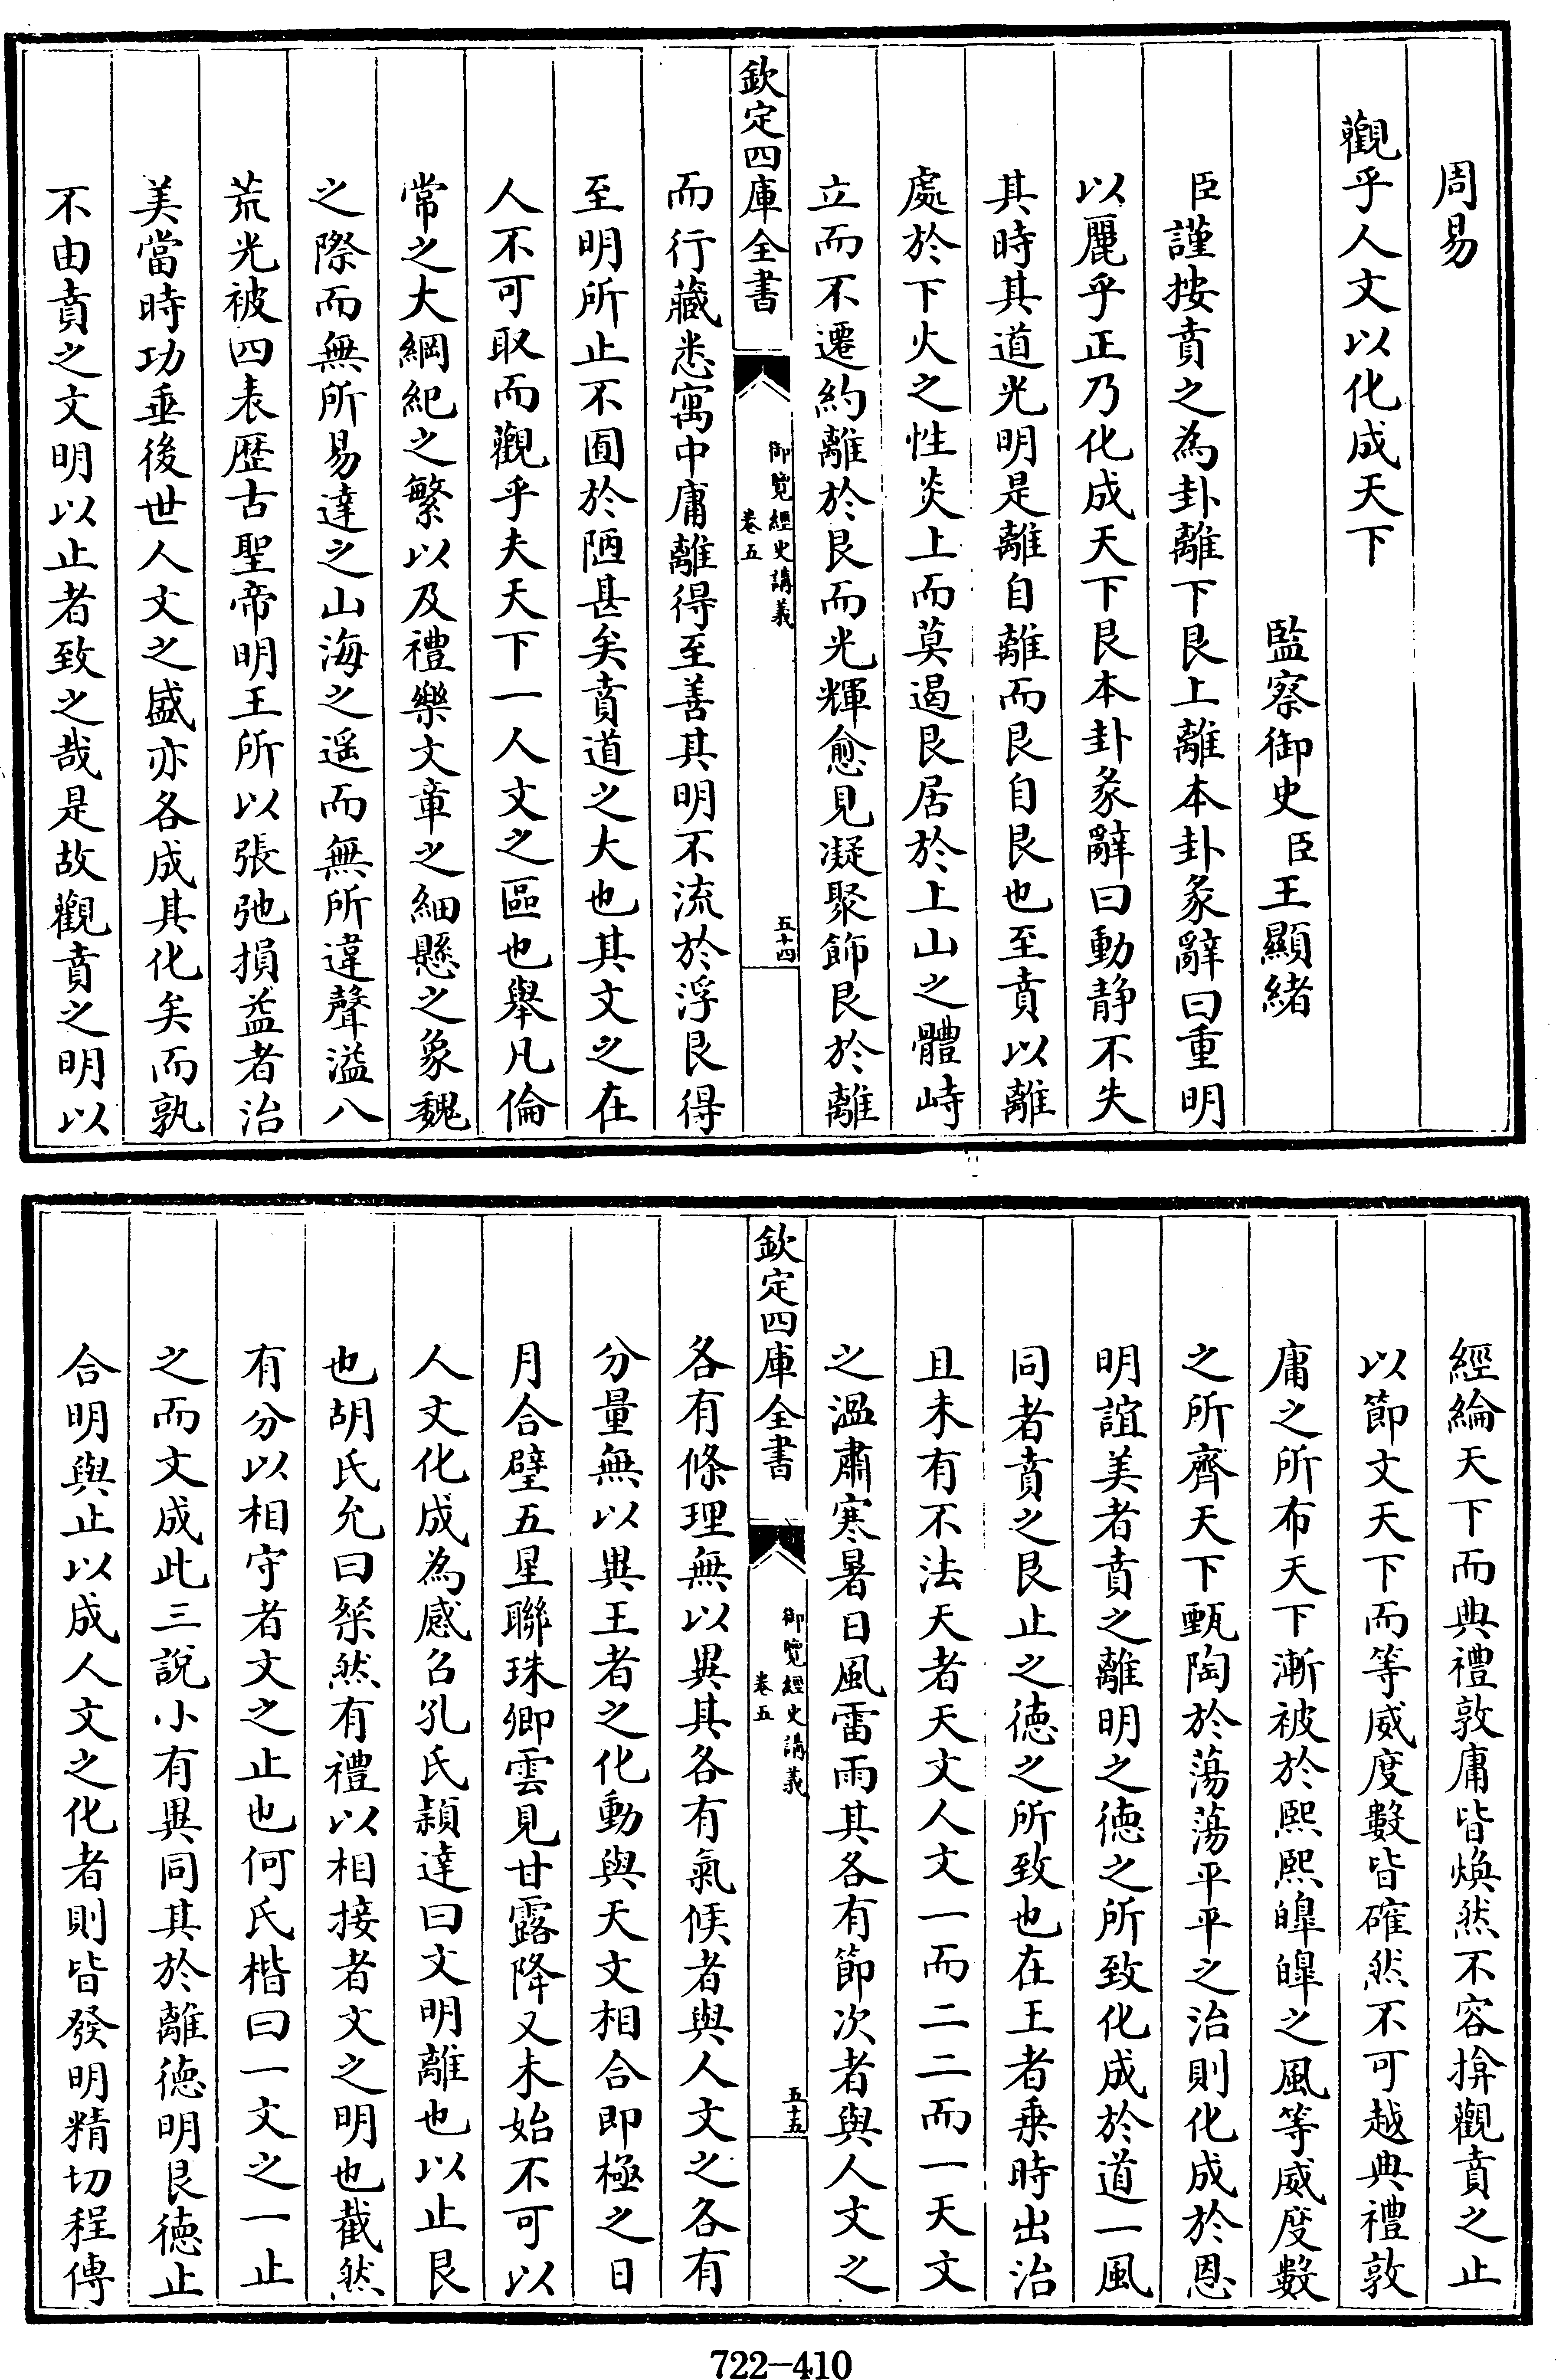 周易
觀乎人文以化成天下
監察御史臣王顯緒
臣謹按賁之為卦離下艮上離本卦彖辭曰重明
以麗乎正乃化成天下艮本卦彖辭曰動静不失
其時其道光明是離自離而艮自艮也至賁以離
處於下火之性炎上而莫遏艮居於上山之體峙
立而不遷約離於艮而光輝愈見凝聚飾艮於離
欽定四庫全書
御覽經史講義
卷五
五十四
而行藏悉寓中庸離得至善其明不流於浮艮得
至明所止不囿於陋甚矣賁道之大也其文之在
人不可取而觀乎夫天下一人文之區也舉凡倫
常之大綱紀之繁以及禮樂文章之細懸之象魏
之際而無所易達之山海之遥而無所違聲溢八
荒光被四表歷古聖帝明王所以張弛損益者治
美當時功垂後世人文之盛亦各成其化矣而孰
不由賁之文明以止者致之哉是故觀賁之明以
經綸天下而典禮敦庸皆煥然不容揜觀賁之止
以節文天下而等威度數皆確然不可越典禮敦
庸之所布天下漸被於熙熙皥皥之風等威度數
之所齊天下甄陶於蕩蕩平平之治則化成於恩
明誼美者賁之離明之德之所致化成於道一風
同者賁之艮止之德之所致也在王者乗時出治
且未有不法天者天文人文一而二二而一天文
之温肅寒暑日風雷雨其各有節次者與人文之
欽定四庫全書
御覽經史講義
卷五
五十五
各有條理無以異其各有氣候者與人文之各有
分量無以異王者之化動與天文相合即極之日
月合璧五星聯珠卿雲見甘露降又未始不可以
人文化成為感召孔氏穎達曰文明離也以止艮
也胡氏允曰粲然有禮以相接者文之明也截然
有分以相守者文之止也何氏楷曰一文之一止
之而文成此三說小有異同其於離德明艮德止
合明與止以成人文之化者則皆發明精切程傳
722-410